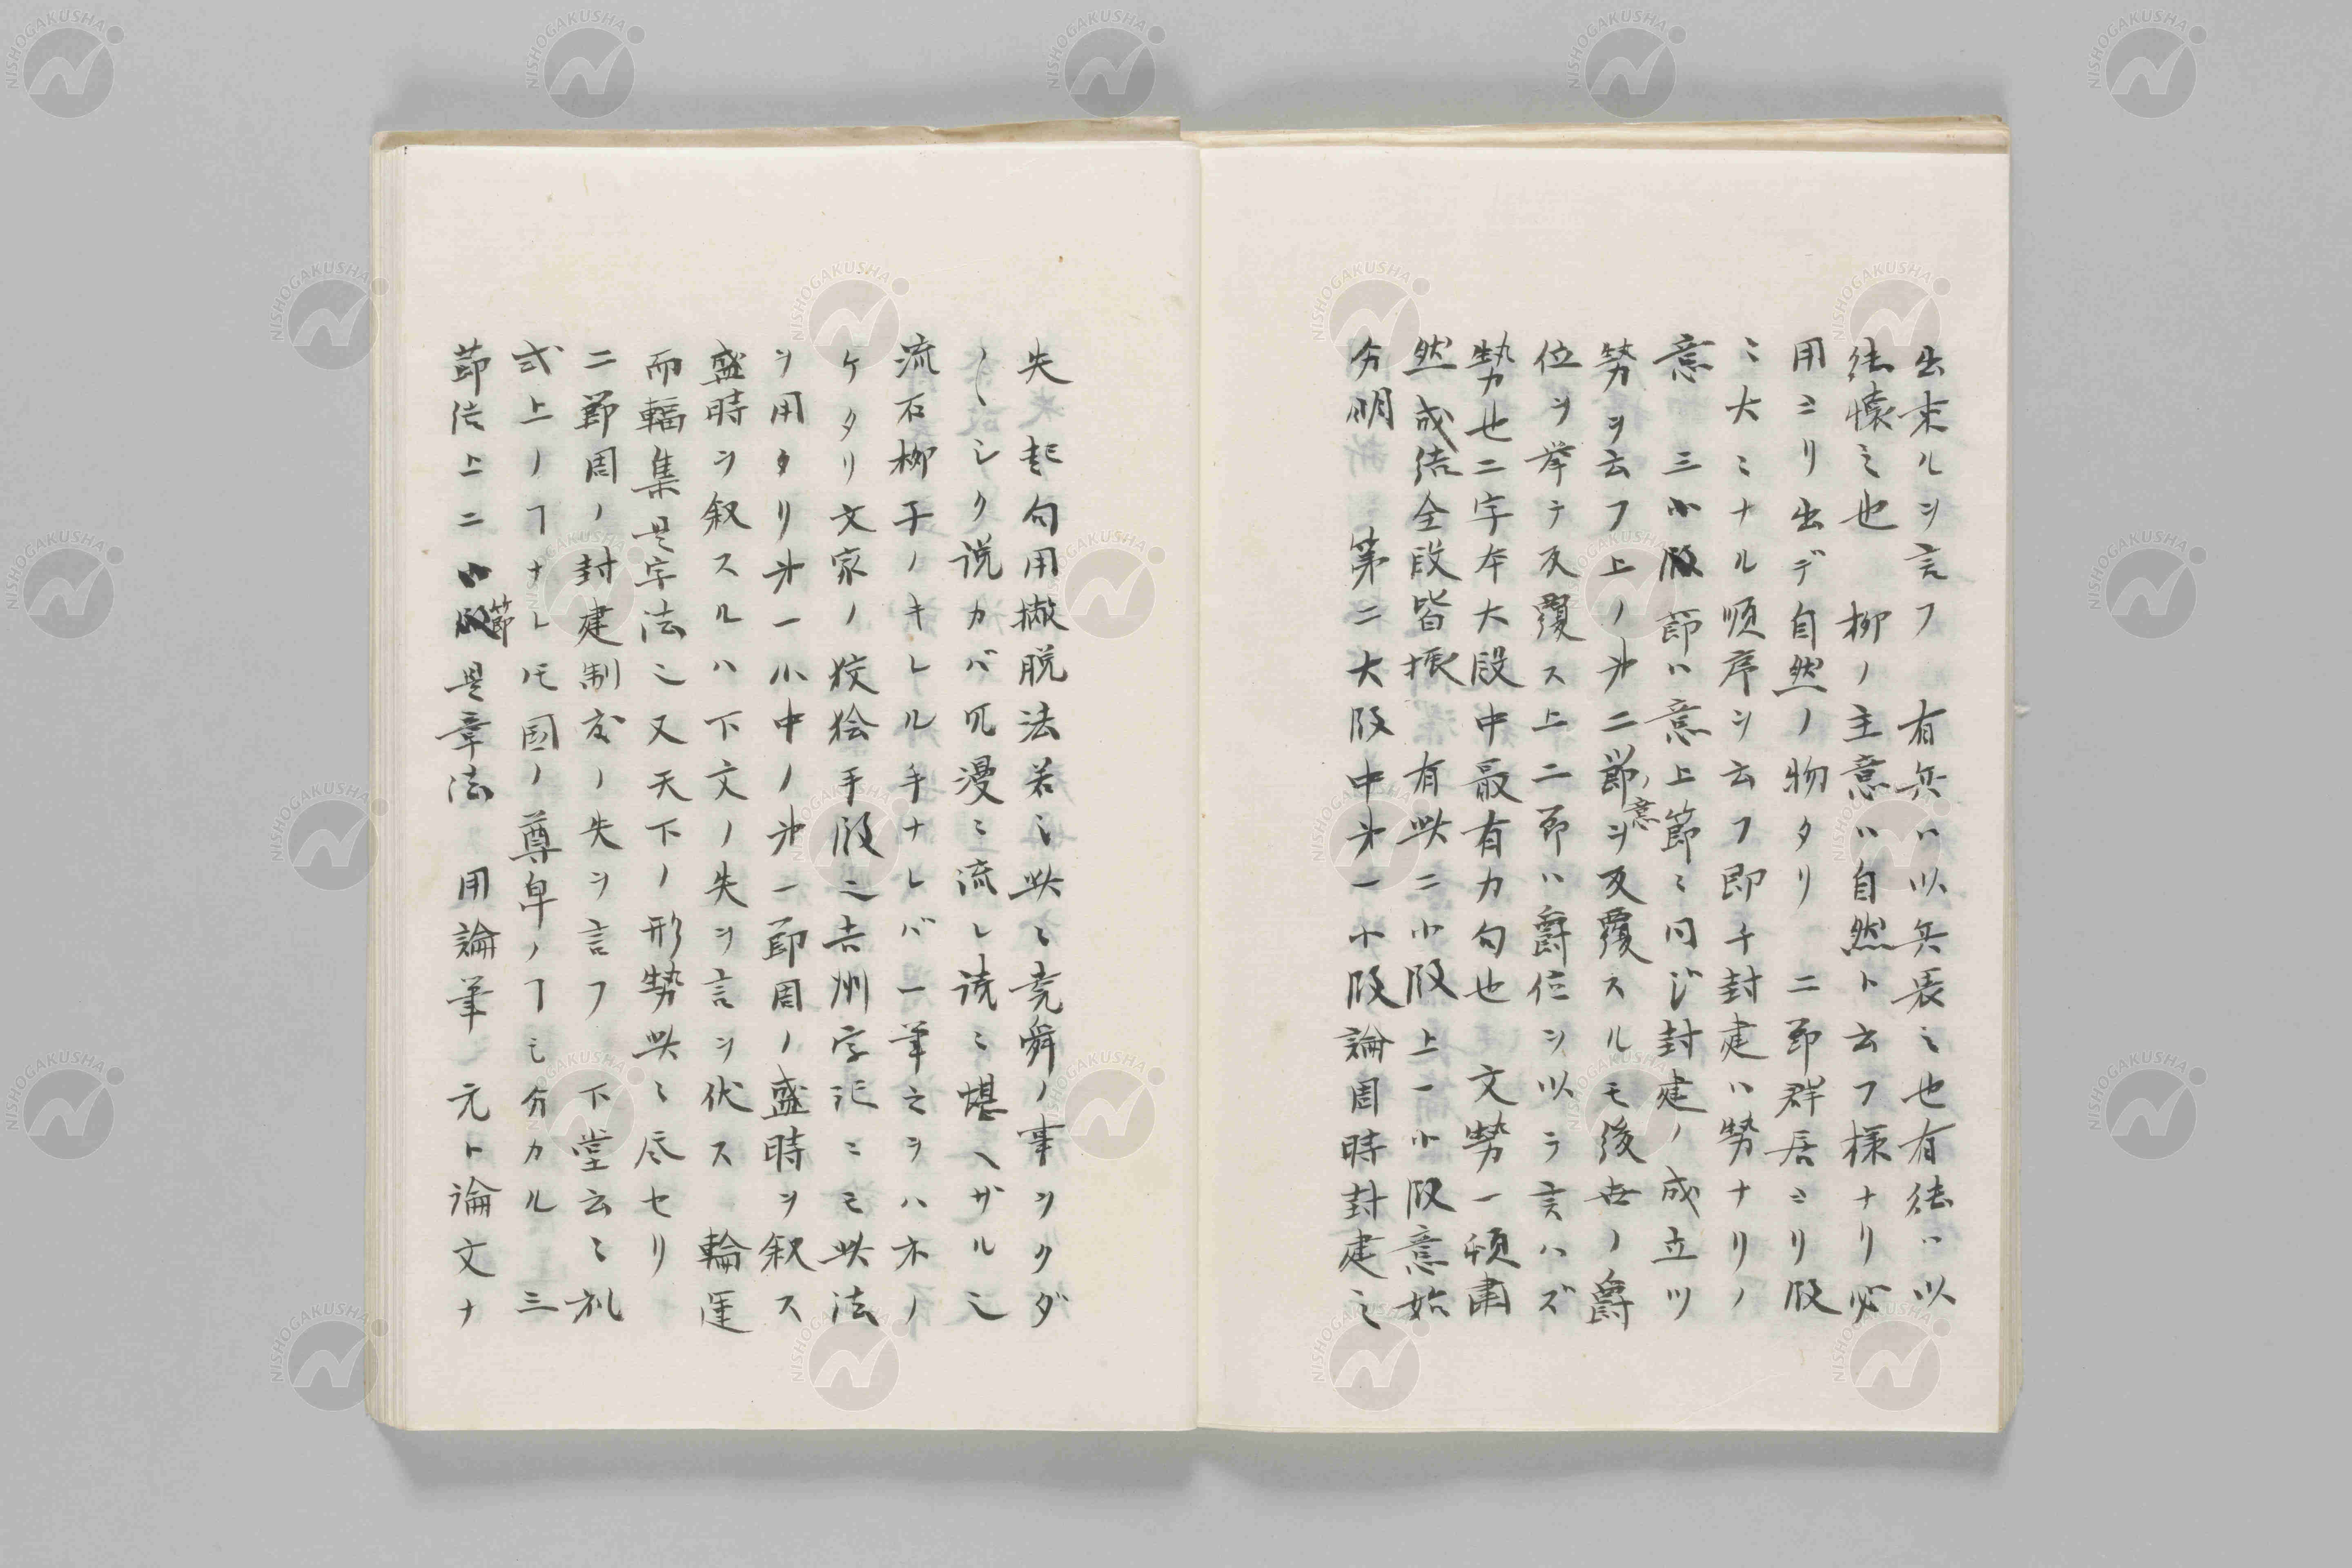 出来ルヲ言フ　有兵ハ以兵衰ミ也有徳ハ以
徳懐ミ也　柳ノ主意ハ自然ト云フ様ナリ必
用ミリ出デ自然ノ物タリ　二節群居ミリ段
ミ大ミナル順序ヲ云フ即チ封建ハ勢ナリノ
意　三小段節ハ意上節ミ同ジ封建ノ成立ツ
勢ヲ云フ上ノ㐧二節ノ意ヲ反覆スルモ後世ノ爵
位ヲ挙テ反覆ス上二節ハ爵位ヲ以テ言ハズ
勢也二字本大段中最有力句也　文勢一頓肅
然成結全段皆振　有此二小段上一小段意始
分明　第二大段中㐧一小段論周時封建之
失起句用撇脱法若ミ此ミ堯舜ノ事ヲクダ
〱シク説カバ冗漫ミ流レ読ミ堪ヘザル之
流石柳子ノキレル手ナレバ一筆之ヲハ木ノ
ケタリ文家ノ狡獪手段之吉州学記ミモ此法
ヲ用タリ㐧一小中ノ㐧一節周ノ盛時ヲ叙ス
盛時ヲ叙スルハ下文ノ失ヲ言ヲ伏ス　輪運
而輻集是字法之又天下ノ形勢此ミ尽セリ
二節周ノ封建制度ノ失ヲ言フ　下堂云ミ礼
式上ノヿナレ𪜈国ノ尊卑ノヿモ分カル　三
節結上二小節是章法　用論筆　元ト論文ナ
NISHOGAKUSHA